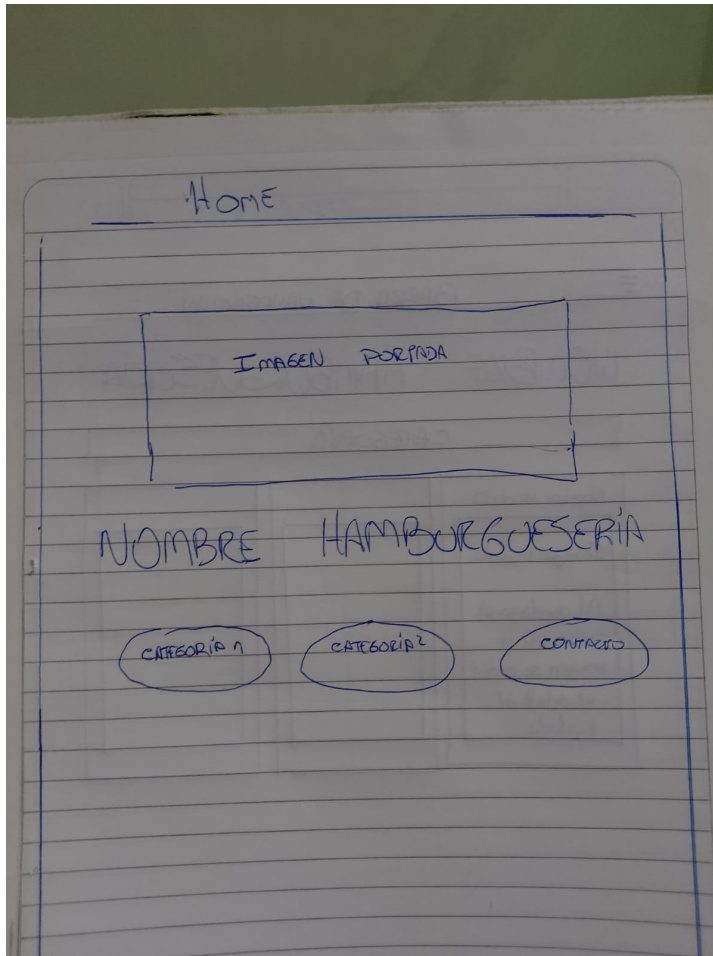 HOME
IMAGEN PORTADA
NOMBRE HAMBURGUESERÍA
CATEGORÍA 1
CATEGORÍA 2
CONTACTO